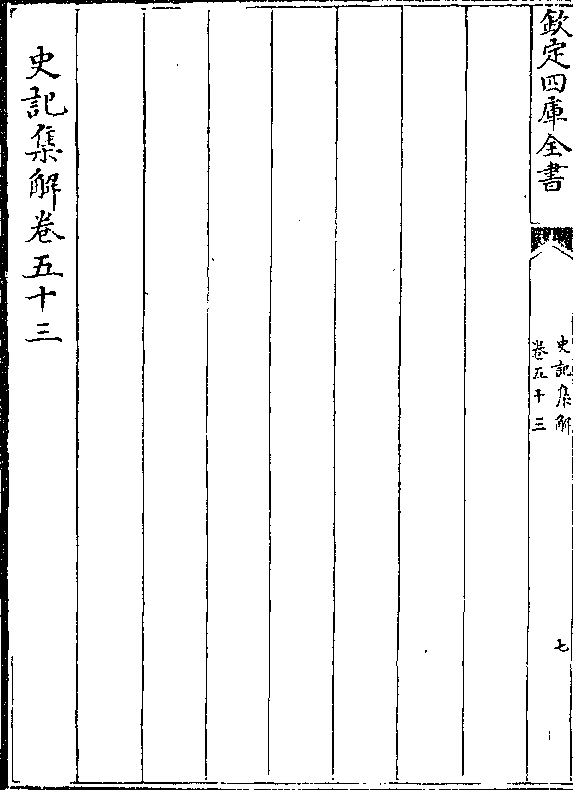 欽定四庫全書
史記集解
卷五十三
七
史記集解卷五十三